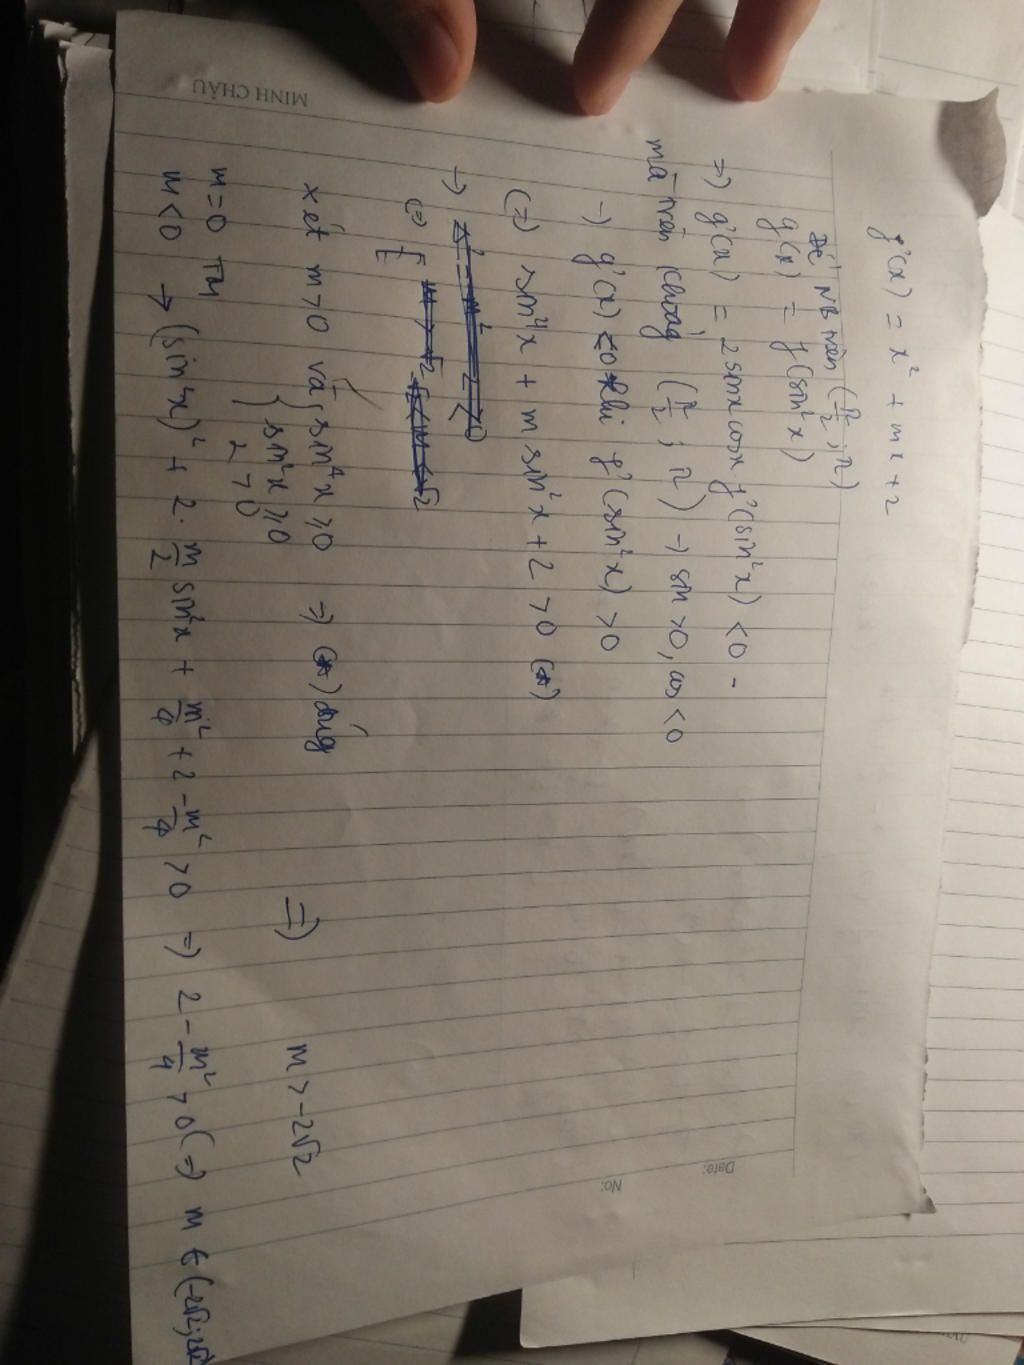 f'(x) = x² + mx + 2
Để NB trên (π/2; π)
g(x) = f(sin²x)
=> g'(x) = 2 sinx cosx f'(sin²x) < 0 -
mà trên khoảng (π/2; π) → sin > 0, cos < 0
→ g'(x) ≤ 0 khi f'(sin²x) > 0
(=) sin⁴x + m sin²x + 2 > 0 (*)
→
(=)
xét m > 0 và { sin⁴x ≥ 0 => (*) đúng => m > -2√2
sin²x ≥ 0
2 > 0
m = 0 TM
m < 0 → (sin²x)² + 2 . m/2 sin²x + m²/4 + 2 - m²/4 > 0 => 2 - m²/4 > 0 (=) m ∈ (-2√2; 2√2
MINH CHÂU
Date:
No: